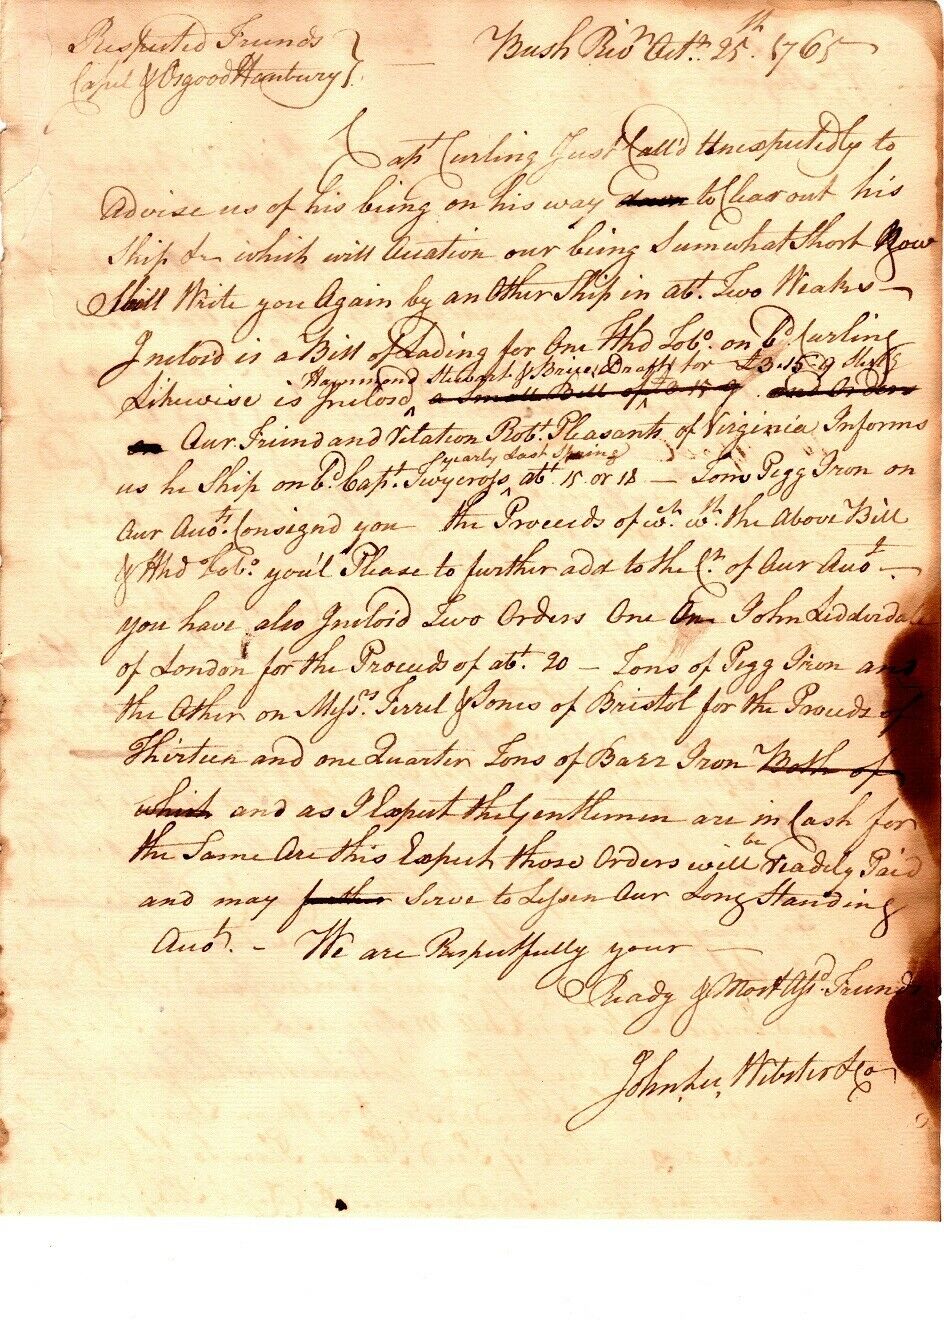 Respected Friends
Bush Rivr Octr. 25th. 1765
Capel & Osgood Hanbury
Capt Curling Just Call'd Unexpectedly to
Advise us of his being on his way down to Clear out his
Ship &c which will Occation our being Sumwhat Short Now
Will Write you Again by an Other Ship in abt. Two Weaks —
Inclosd is a Bill of Lading for One Hhd Tobo. on bd. Curling
Hammond Stewart & Brices Draft for £3.15.9 Sterlg
Likewise is Inclosd a Small Bill of £3.15.9 and Orders
on Our Friend and relation Robt. Pleasants of Virginia Informs
yearly Last Spring
us he Ship on bd. Capt. Twycross abt. 15 or 18 — Tons Pegg Iron on
Our Accot. Consignd you the Proceeds of wch. wth. the Above Bill
& Hhd Tobo. you'l Please to further add to the Cr. of Our Accot —
you have also Inclosd Two Orders One On John Lidderdale
of London for the Proceeds of abt. 20 — Tons of Pegg Iron and
the Other on Messrs. Ferrel & Jones of Bristol for the Proceeds of
Thirteen and one Quarter Tons of Barr Iron Both of
which and as I Expect the Gentlemen are in Cash for
be
the Same Are this Expect those Orders will readely Paid
and may further Serve to Lessen Our Long Standing
Accot. — We are Respectfully your —
Ready & Most Assd. Friends
John Lee Webster & Co